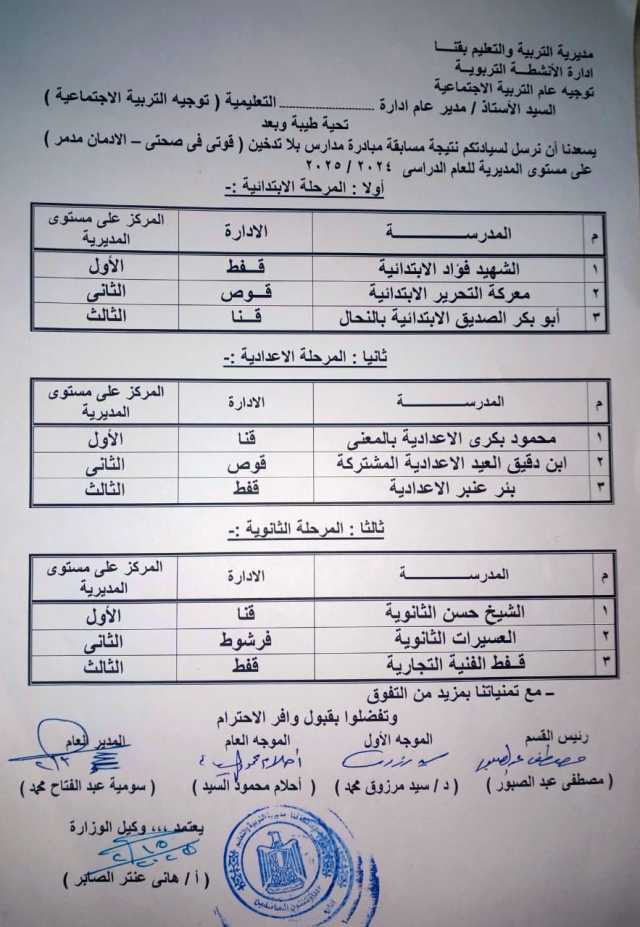 مديرية التربية والتعليم بقنـــا
ادارة الأنشطـة التربويـة
توجيه عام التربية الاجتماعية
السيد الأستاذ / مدير عام ادارة .................... التعليمية ( توجيه التربية الاجتماعية )
تحية طيبة وبعد
يسعدنا أن نرسل لسيادتكم نتيجة مسابقة مبادرة مدارس بلا تدخين ( قوتى فى صحتى – الادمان مدمر )
على مستوى المديرية للعام الدراسى ٢٠٢٤ / ٢٠٢٥
أولا : المرحلة الابتدائية :-
م المدرســـــــــــة الادارة المركز على مستوى المديرية
١ الشهيد فؤاد الابتدائية قـفـط الأول
٢ معركة التحرير الابتدائية قـــوص الثانى
٣ أبو بكر الصديق الابتدائية بالنحال قـنـا الثالث
ثانيا : المرحلة الاعدادية :-
م المدرســـــــــــة الادارة المركز على مستوى المديرية
١ محمود بكرى الاعدادية بالمعنى قنا الأول
٢ ابن دقيق العيد الاعدادية المشتركة قوص الثانى
٣ بئر عنبر الاعدادية قفط الثالث
ثالثا : المرحلة الثانوية :-
م المدرســـــــــــة الادارة المركز على مستوى المديرية
١ الشيخ حسن الثانوية قنا الأول
٢ العسيرات الثانوية فرشوط الثانى
٣ قـفط الفنية التجارية قفط الثالث
– مع تمنياتنا بمزيد من التفوق
وتفضلوا بقبول وافر الاحترام
رئيس القسم الموجه الأول الموجه العام المدير العام
مصطفى عبد الصبور أحلام محمود السيد
( مصطفى عبد الصبور ) ( د / سيد مرزوق محمد ) ( أحلام محمود السيد ) ( سومية عبد الفتاح محمد )
يعتمد ،،، وكيل الوزارة
( أ / هانى عنتر الصابر )